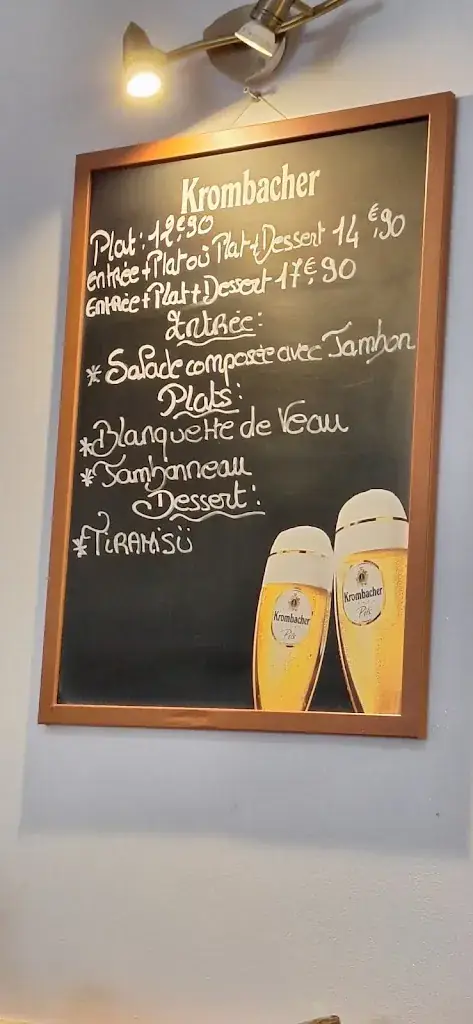 Krombacher
Plat: 12€90
entrée+Plat où Plat+Dessert 14€,90
Entrée+Plat+Dessert 17€90
Entrée:
* Salade composée avec Jambon
Plats:
*Blanquette de Veau
*Jambonneau
Dessert:
*TIRAMISÙ
Krombacher
Pils
Krombacher
Pils